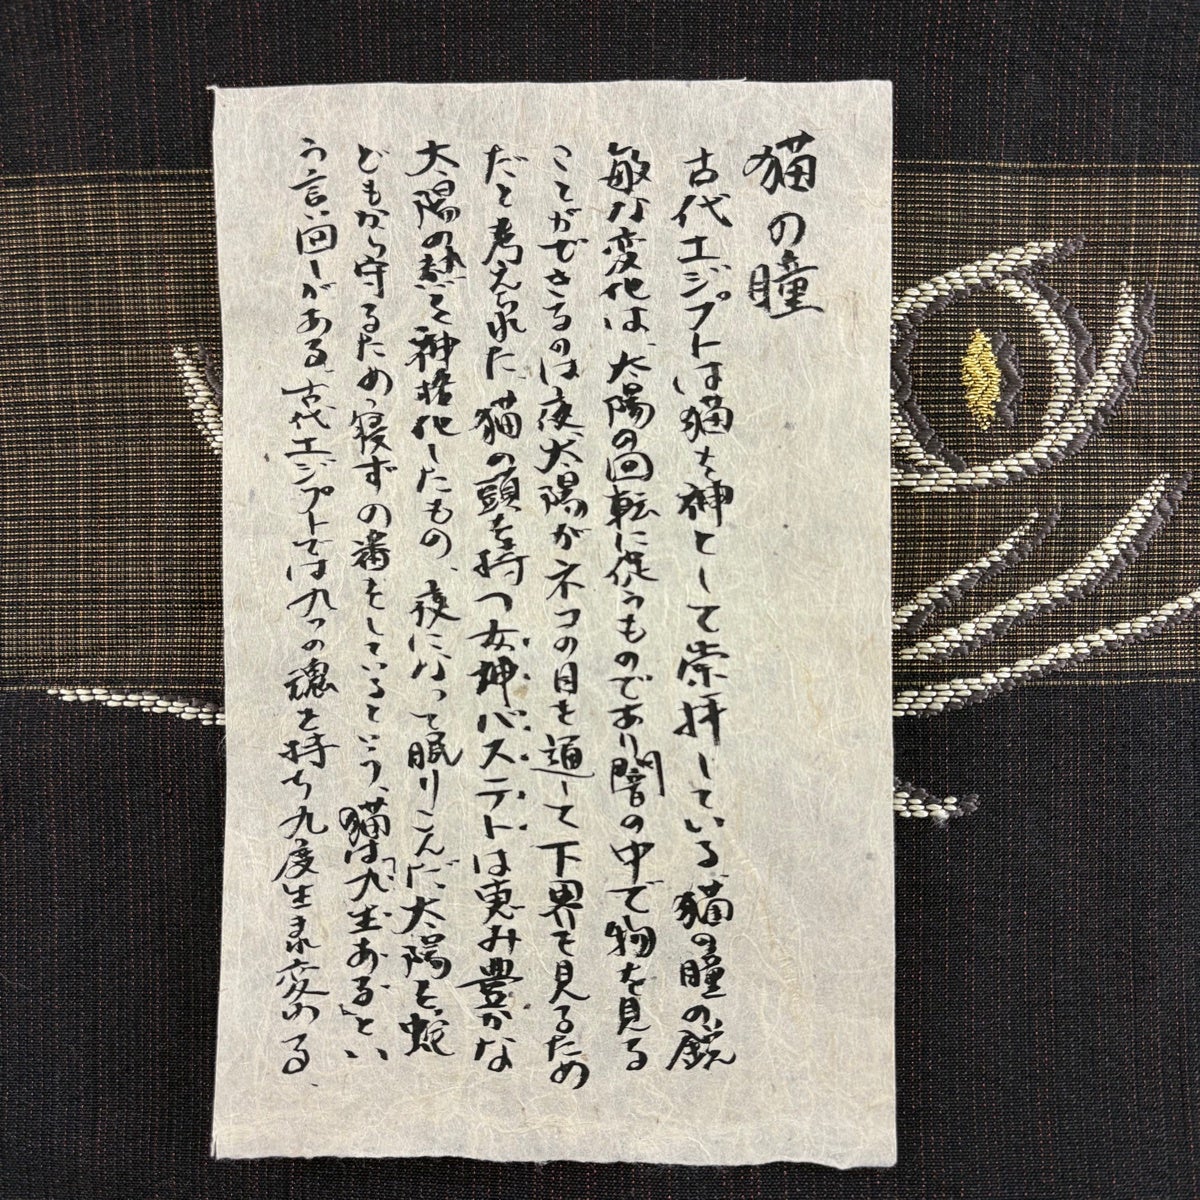 猫の瞳
古代エジプトは猫を神として崇拝している。猫の瞳の鋭
敏な変化は、太陽の回転に従うものであり闇の中で物を見る
ことができるのは夜、太陽がネコの目を通して下界を見るため
だと考えられた。猫の頭を持つ女神バステトは恵み豊かな
太陽の熱を神格化したもの、夜になって眠りこんだ太陽を、蛇
どもから守るため、寝ずの番をしているという、猫は「九生ある」とい
う言い回しがある。古代エジプトでは九つの魂を持ち九度生まれ変わる、